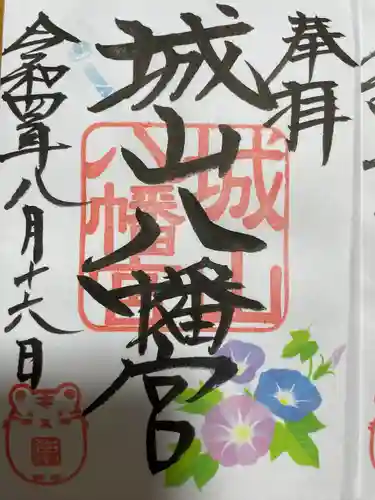 奉拝
城山八幡宮
城山
八幡宮
令和四年八月十六日